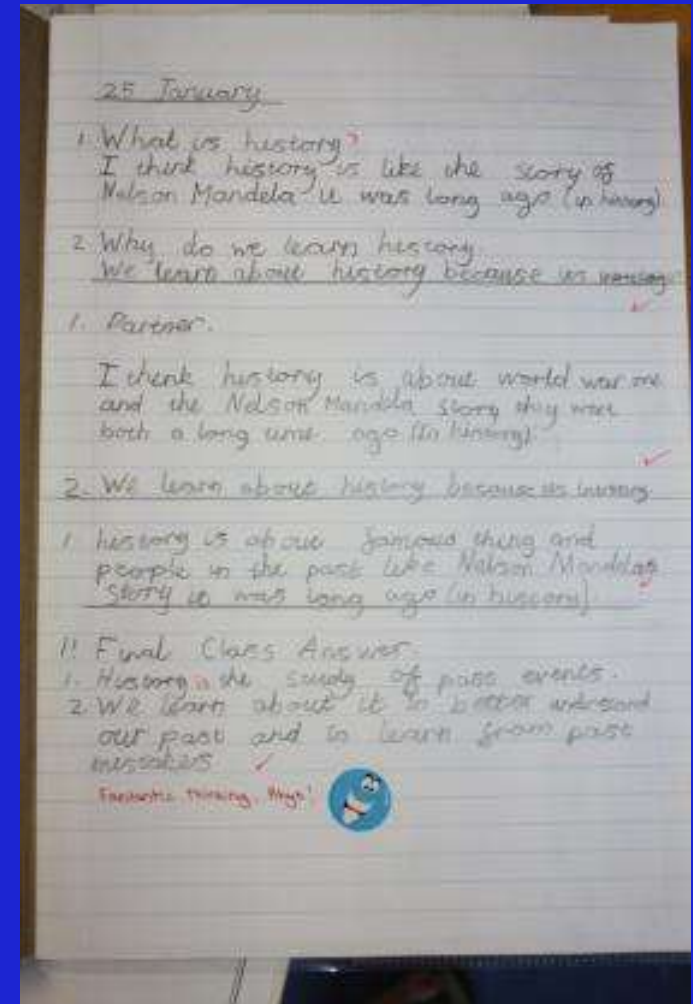 25 January
1. What is history?
I think history is like the story of
Nelson Mandela it was long ago (in history)
2 Why do we learn history.
We learn about history because its
1. Partner.
I think history is about world war one
and the Nelson Mandela story they were
both a long time ago (In history).
2. We learn about history because its
1. history is about famous thing and
people in the past like Nelson Mandelas
story it was long ago (in history).
Final Class Answer.
1. History is the study of past events.
2 We learn about it to better understand
our past and to learn from past
mistakes
Fantastic thinking, Rhys!